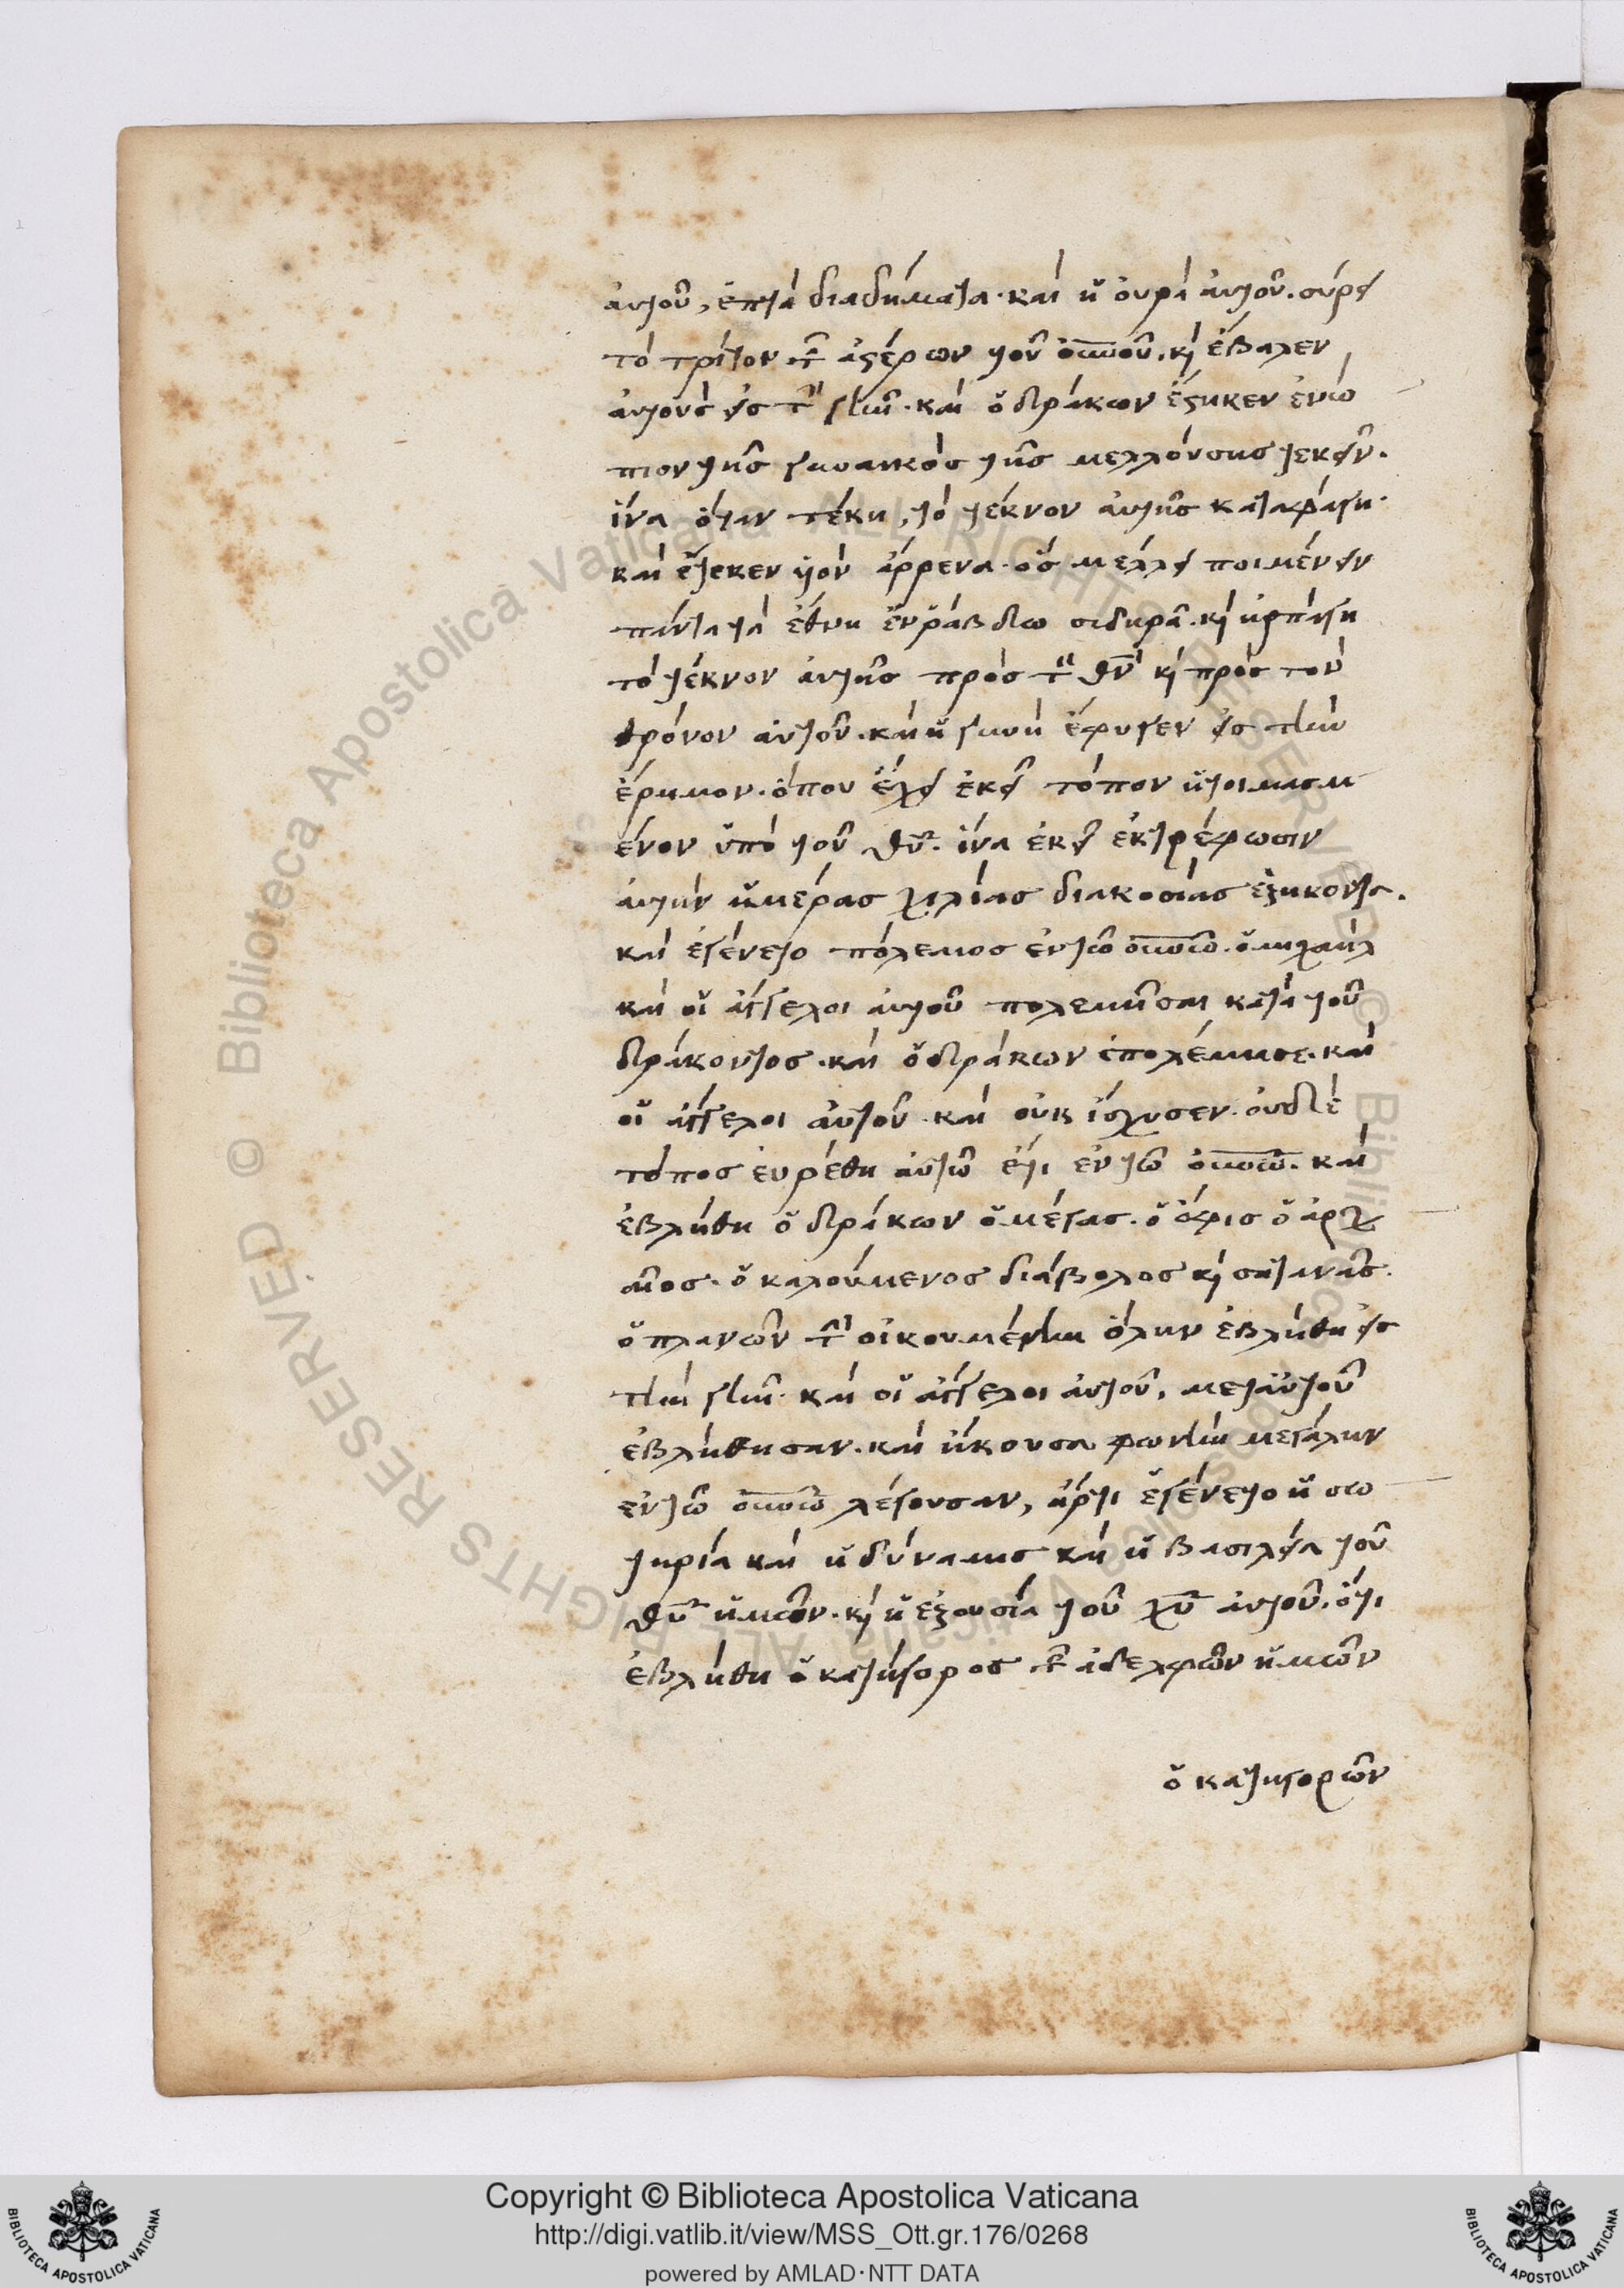 αυτοῦ, ἑπτὰ διαδήματα· καὶ ἡ οὐρὰ αὐτοῦ. σύρει
τὸ τρίτον τῶν ἀστέρων τοῦ οὐνοῦ. κ(αὶ) ἔβαλεν
αὐτοὺς εἰς τὴν γῆν. καὶ ὁ δράκων ἕστηκεν ἐνώ
πιον τῆς γυναικὸς τῆς μελλούσης τεκεῖν.
ἵνα ὅταν τέκη, τὸ τέκνον αὐτῆς καταφάγη.
καὶ ἔτεκεν υἱὸν ἄρρενα. ὃς μέλλει ποιμένειν
πάντα τὰ ἔθνη ἐν ῥάβδω σιδηρᾶ. κ(αὶ) ἡρπάγη
τὸ τέκνον αὐτῆς πρὸς τὸν θν κ(αὶ) πρὸς τὸν
θρόνον αὐτοῦ. καὶ ἡ γυνὴ ἔφυγεν εἰς τὴν
ἔρημον. ὅπου ἔχει ἐκεῖ τόπον ἡτοιμασμ
ένον ὑπὸ τοῦ θυ. ἵνα ἐκεῖ ἐκτρέφωσιν
αὐτὴν ἡμέρας χιλίας διακοσίας ἑξήκοντα.
καὶ ἐγένετο πόλεμος ἐν τῶ οὐνῶ. ὁ μιχαὴλ
καὶ οἱ ἄγγελοι αὐτοῦ πολεμῆσαι κατὰ τοῦ
δράκοντος. καὶ ὁ δράκων ἐπολέμησε. καὶ
οἱ ἄγγελοι αὐτοῦ. καὶ οὐκ ἴσχυσεν. οὐδὲ
τόπος εὑρέθη αὐτῶ ἔτι ἐν τῶ οὐνῶ. καὶ
ἐβλήθη ὁ δράκων ὁ μέγας. ὁ ὄφις ὁ ἀρχ
αῖος. ὁ καλούμενος διάβολος κ(αὶ) σατανᾶς.
ὁ πλανῶν τὴν οἰκουμένην ὅλην ἐβλήθη εἰς
τὴν γῆν. καὶ οἱ ἄγγελοι αὐτοῦ, μετ' αὐτοῦ
ἐβλήθησαν. καὶ ἤκουσα φωνὴν μεγάλην
ἐν τῶ οὐνῶ λέγουσαν, ἄρτι ἐγένετο ἡ σω
τηρία καὶ ἡ δύναμις καὶ ἡ βασιλεία τοῦ
θυ ἡμῶν. κ(αὶ) ἡ ἐξουσία τοῦ χυ αὐτοῦ. ὅτι
ἐβλήθη ὁ κατήγορος τῶν ἀδελφῶν ἡμῶν
ὁ κατηγορῶν
Biblioteca Apostolica Vaticana ALL RIGHTS RESERVED ©
Copyright © Biblioteca Apostolica Vaticana
http://digi.vatlib.it/view/MSS_Ott.gr.176/0268
powered by AMLAD·NTT DATA
BIBLIOTECA APOSTOLICA VATICANA
BIBLIOTECA APOSTOLICA VATICANA